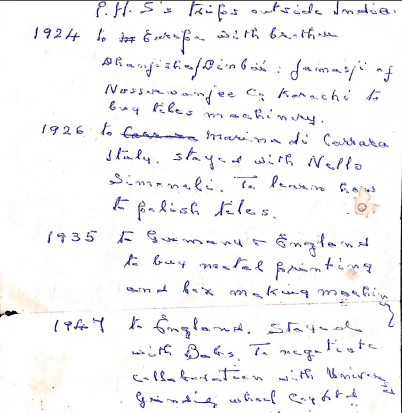 P.H.S's trips outside India.
1924 to Europe with brother
Dhanjisha Pinbai; Jamasji of
Nosserwanjee Co Karachi to
buy tiles machinery.
1926 to Marina di Carrara
Italy. stayed with Nello
To learn how
to polish tiles.
1935 to Germany & England
to buy metal printing
and box making machin
1947 to England. Stayed
with Bobs. To negotiate
collaboration with Univers
Grinding wheel